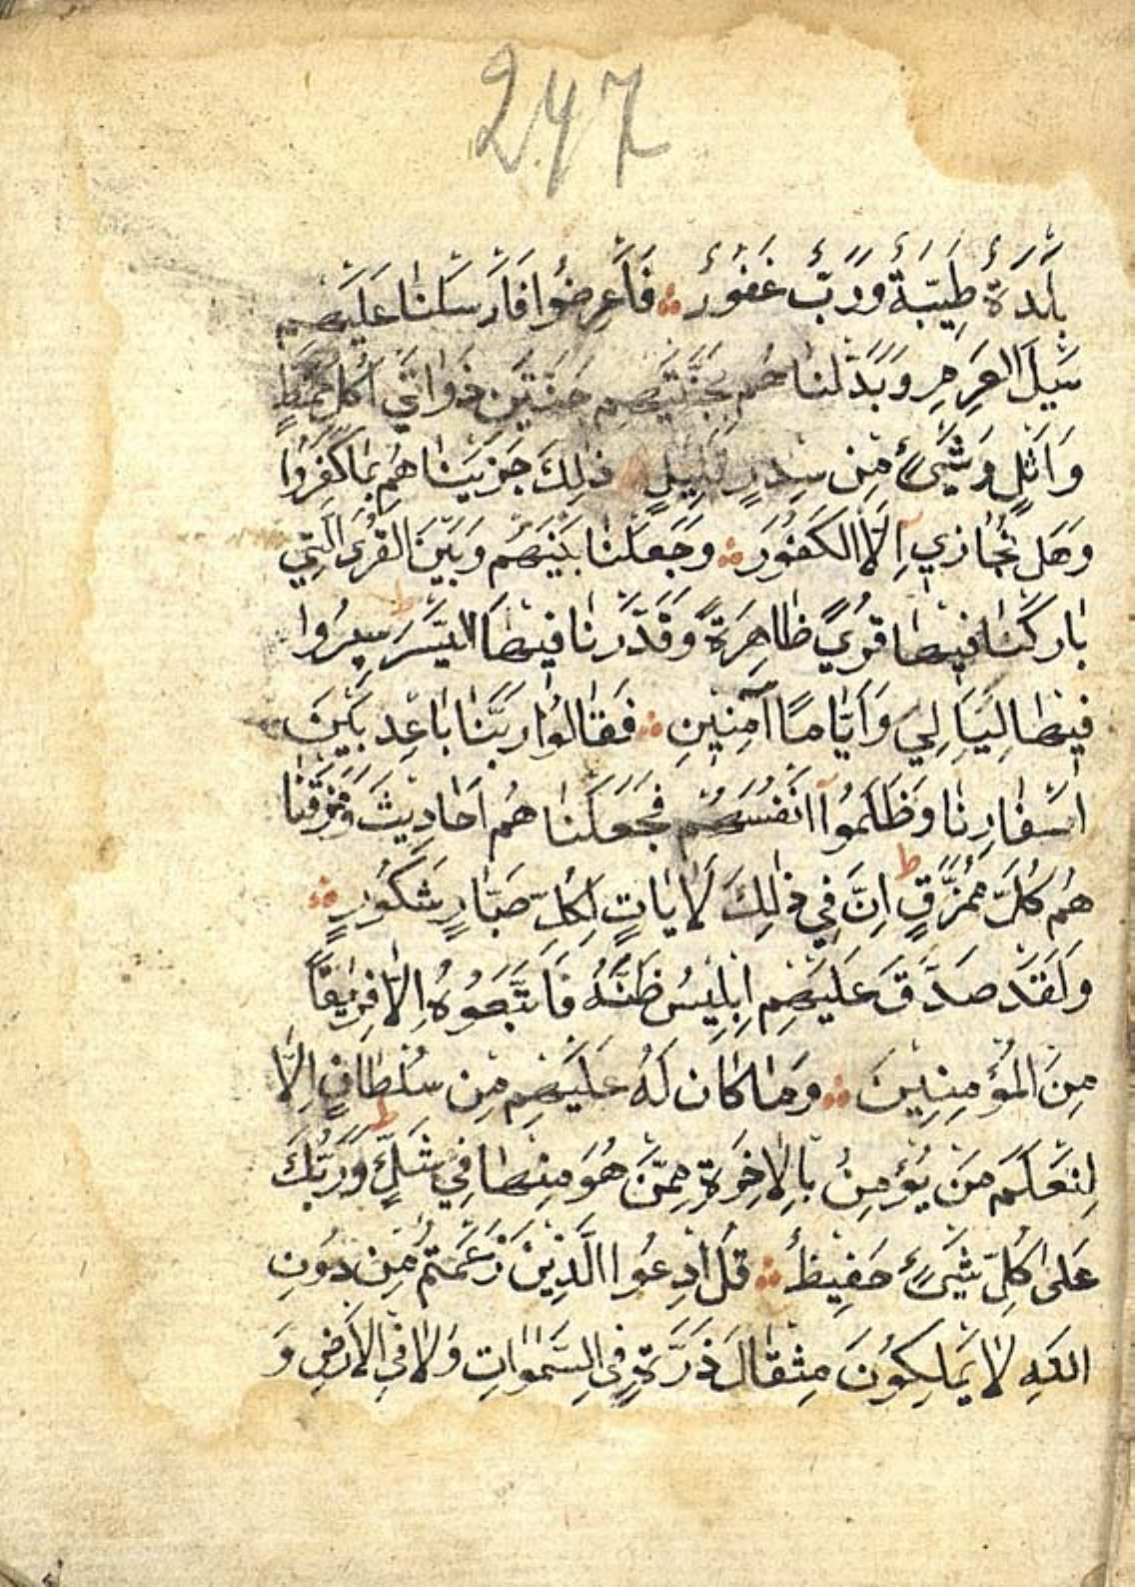 247
بَلْدَةٌ طَيِّبَةٌ وَرَبٌّ غَفُورٌ ؞ فَاَعْرَضُوا فَاَرْسَلْنٰا عَلَيْهِمْ
سَيْلَ الْعَرِمِ وَبَدَّلْنٰا هُمْ بِجَنَّتَيْهِمْ جَنَّتَيْنِ ذَوٰاتَيْ اُكُلٍ خَمْطٍ
وَاَثْلٍ وَشَيْءٍ مِنْ سِدْرٍ قَلِيلٍ ؞ ذٰلِكَ جَزَيْنٰا هُمْ بِمٰا كَفَرُوا
وَهَلْ نُجٰازِي اِلَّا الْكَفُورَ ؞ وَجَعَلْنٰا بَيْنَهُمْ وَبَيْنَ الْقُرَى الَّتِي
بٰارَكْنٰا فِيهٰا قُرًي ظٰاهِرَةً وَقَدَّرْنٰا فِيهَا السَّيْرَ ط سِيرُوا
فِيهٰا لَيٰالِيَ وَاَيّٰامًا آمِنِينَ ؞ فَقٰالُوا رَبَّنٰا بٰاعِدْ بَيْنَ
اَسْفٰارِنٰا وَظَلَمُوآ اَنْفُسَهُمْ فَجَعَلْنٰا هُمْ اَحٰادِيثَ وَمَزَّقْنٰا
هُمْ كُلَّ مُمَزَّقٍ ط اِنَّ فِي ذٰلِكَ لَاٰيٰاتٍ لِكُلِّ صَبّٰارٍ شَكُورٍ ؞
وَلَقَدْ صَدَّقَ عَلَيْهِمْ اِبْلِيسُ ظَنَّهُ فَاتَّبَعُوهُ اِلّٰا فَرِيقًا
مِنَ الْمُؤْمِنِينَ ؞ وَمٰا كٰانَ لَهُ عَلَيْهِمْ مِنْ سُلْطٰانٍ اِلَّا
لِنَعْلَمَ مَنْ يُؤْمِنُ بِالْاٰخِرَةِ مِمَّنْ هُوَ مِنْهٰا فِي شَكٍّ ط وَرَبُّكَ
عَلىٰ كُلِّ شَيْءٍ حَفِيظٌ ؞ قُلِ ادْعُوا الَّذِينَ زَعَمْتُمْ مِنْ دُونِ
اللّٰهِ لٰا يَمْلِكُونَ مِثْقٰالَ ذَرَّةٍ فِي السَّمٰوٰاتِ وَلٰا فِي الْاَرْضِ وَ